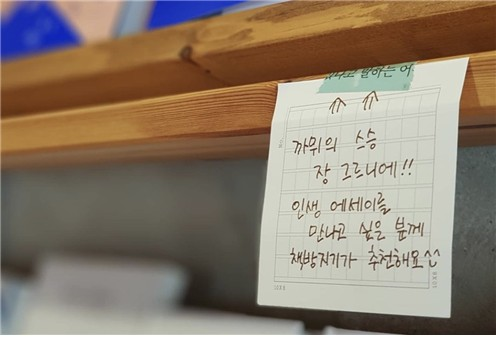 라고 말하는 어
⇑ ⇑
까뮈의 스승
장 그르니에!!
인생 에세이를
만나고 싶은 분께
책방지기가 추천해요^^